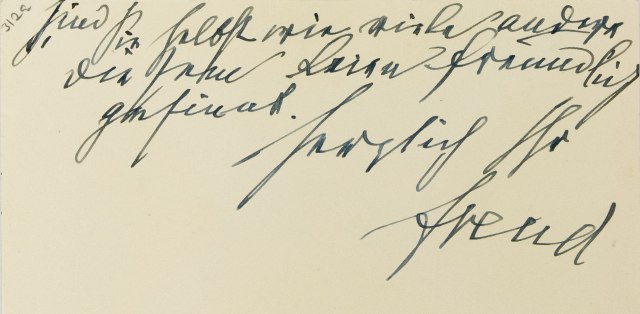 3122
sind Sie selbst wie viele andere
diesem freundlich
gesinnt.
Herzlich Ihr
Freud